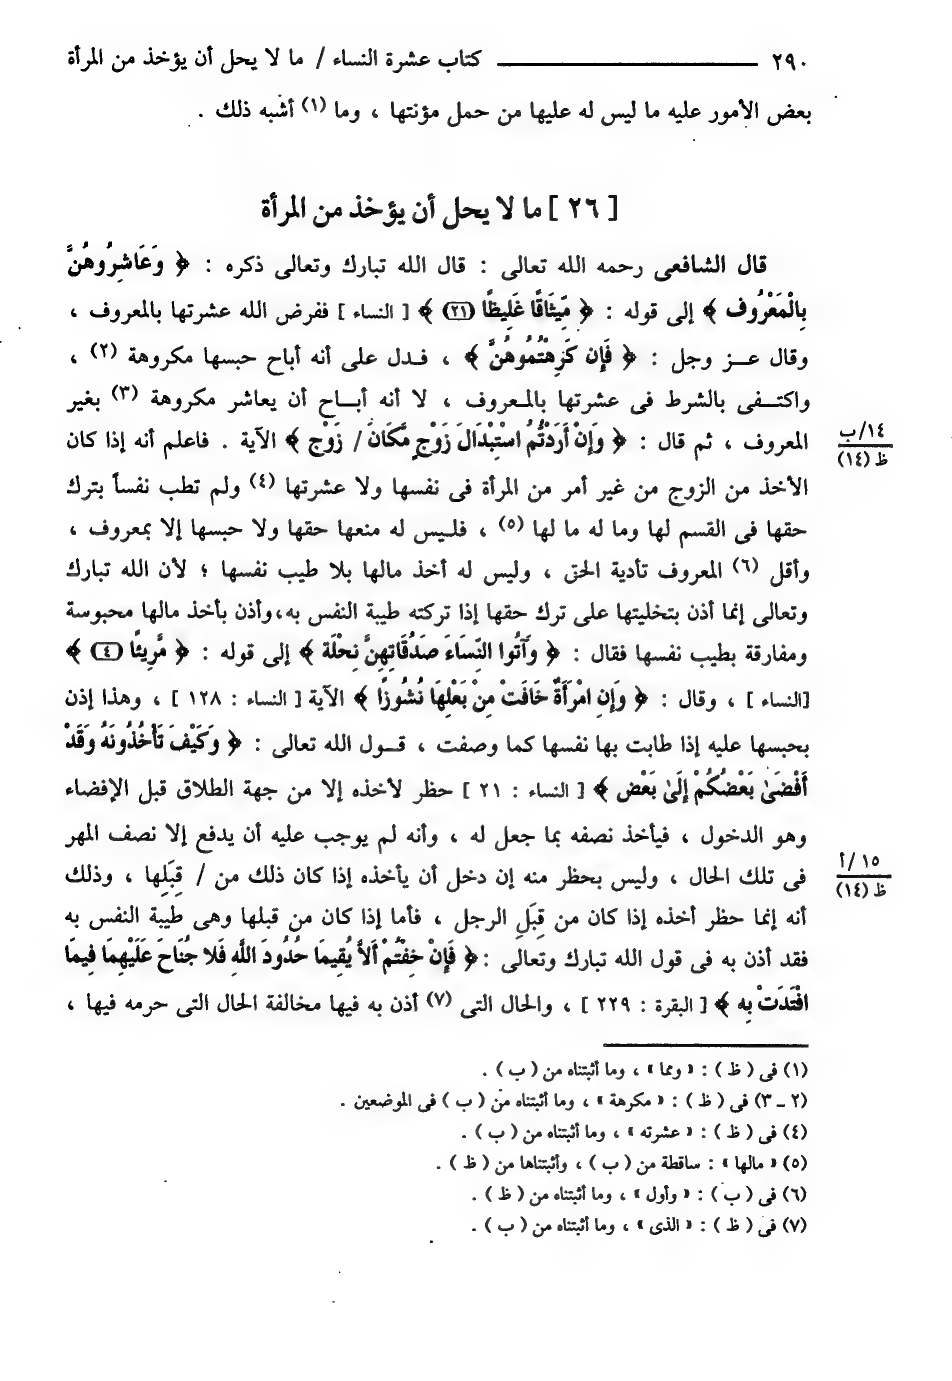 ٢٩٠ ــــــــــــــــــــ كتاب عشرة النساء / ما لا يحل أن يؤخذ من المرأة
بعض الأمور عليه ما ليس له عليها من حمل مؤنتها ، وما (١) أشبه ذلك .
[ ٢٦ ] ما لا يحل أن يؤخذ من المرأة
قال الشافعى رحمه الله تعالى : قال الله تبارك وتعالى ذكره : ﴿ وَعَاشِرُوهُنَّ
بِالْمَعْرُوفِ ﴾ إلى قوله : ﴿ مِّيثَاقًا غَلِيظًا (٢١) ﴾ [ النساء ] ففرض الله عشرتها بالمعروف ،
وقال عز وجل : ﴿ فَإِن كَرِهْتُمُوهُنَّ ﴾ ، فدل على أنه أباح حبسها مكروهة (٢) ،
واكتفى بالشرط فى عشرتها بالمعروف ، لا أنه أباح أن يعاشر مكروهة (٣) بغير
المعروف ، ثم قال : ﴿ وَإِنْ أَرَدْتُمُ اسْتِبْدَالَ زَوْجٍ مَّكَانَ / زَوْجٍ ﴾ الآية . فاعلم أنه إذا كان
١٤/ب
ظ (١٤)
الأخذ من الزوج من غير أمر من المرأة فى نفسها ولا عشرتها (٤) ولم تطب نفساً بترك
حقها فى القسم لها وما له ما لها (٥) ، فليس له منعها حقها ولا حبسها إلا بمعروف ،
وأقل (٦) المعروف تأدية الحق ، وليس له أخذ مالها بلا طيب نفسها ؛ لأن الله تبارك
وتعالى إنما أذن بتخليتها على ترك حقها إذا تركته طيبة النفس به،وأذن بأخذ مالها محبوسة
ومفارقة بطيب نفسها فقال : ﴿ وَآتُوا النِّسَاءَ صَدُقَاتِهِنَّ نِحْلَةً ﴾ إلى قوله : ﴿ مَّرِيئًا (٤) ﴾
[النساء ] ، وقال : ﴿ وَإِنِ امْرَأَةٌ خَافَتْ مِنْ بَعْلِهَا نُشُوزًا ﴾ الآية [ النساء : ١٢٨ ] ، وهذا إذن
بحبسها عليه إذا طابت بها نفسها كما وصفت ، قول الله تعالى : ﴿ وَكَيْفَ تَأْخُذُونَهُ وَقَدْ
أَفْضَىٰ بَعْضُكُمْ إِلَىٰ بَعْضٍ ﴾ [ النساء : ٢١ ] حظر لأخذه إلا من جهة الطلاق قبل الإفضاء
وهو الدخول ، فيأخذ نصفه بما جعل له ، وأنه لم يوجب عليه أن يدفع إلا نصف المهر
فى تلك الحال ، وليس بحظر منه إن دخل أن يأخذه إذا كان ذلك من / قِبَلِها ، وذلك
١٥/أ
ظ (١٤)
أنه إنما حظر أخذه إذا كان من قِبَلِ الرجل ، فأما إذا كان من قبلها وهى طيبة النفس به
فقد أذن به فى قول الله تبارك وتعالى :﴿ فَإِنْ خِفْتُمْ أَلاَّ يُقِيمَا حُدُودَ اللَّهِ فَلا جُنَاحَ عَلَيْهِمَا فِيمَا
افْتَدَتْ بِهِ ﴾ [ البقرة : ٢٢٩ ] ، والحال التى (٧) أذن به فيها مخالفة الحال التى حرمه فيها ،
(١) فى ( ظ ) : « ومما » ، وما أثبتناه من ( ب ) .
(٢ ـ ٣) فى ( ظ ) : « مكرهة » ، وما أثبتناه من ( ب ) فى الموضعين .
(٤) فى ( ظ ) : « عشرته » ، وما أثبتناه من ( ب ) .
(٥) « مالها » : ساقطة من ( ب ) ، وأثبتناها من ( ظ ) .
(٦) فى ( ب ) : « وأول » ، وما أثبتناه من ( ظ ) .
(٧) فى ( ظ ) : « الذى » ، وما أثبتناه من ( ب ) .